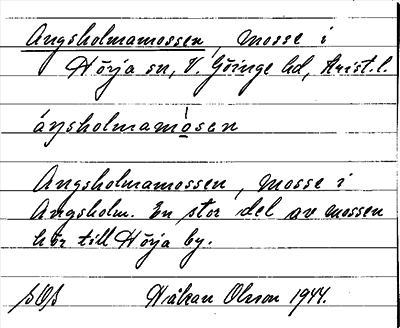 Angsholmamossen, mosse i
Hörja sn, V. Göinge hd, Krist.l.
Angsholmamossen, mosse i
Angsholm. En stor del av mossen
hör till Hörja by.
Håkan Olsson 1944.